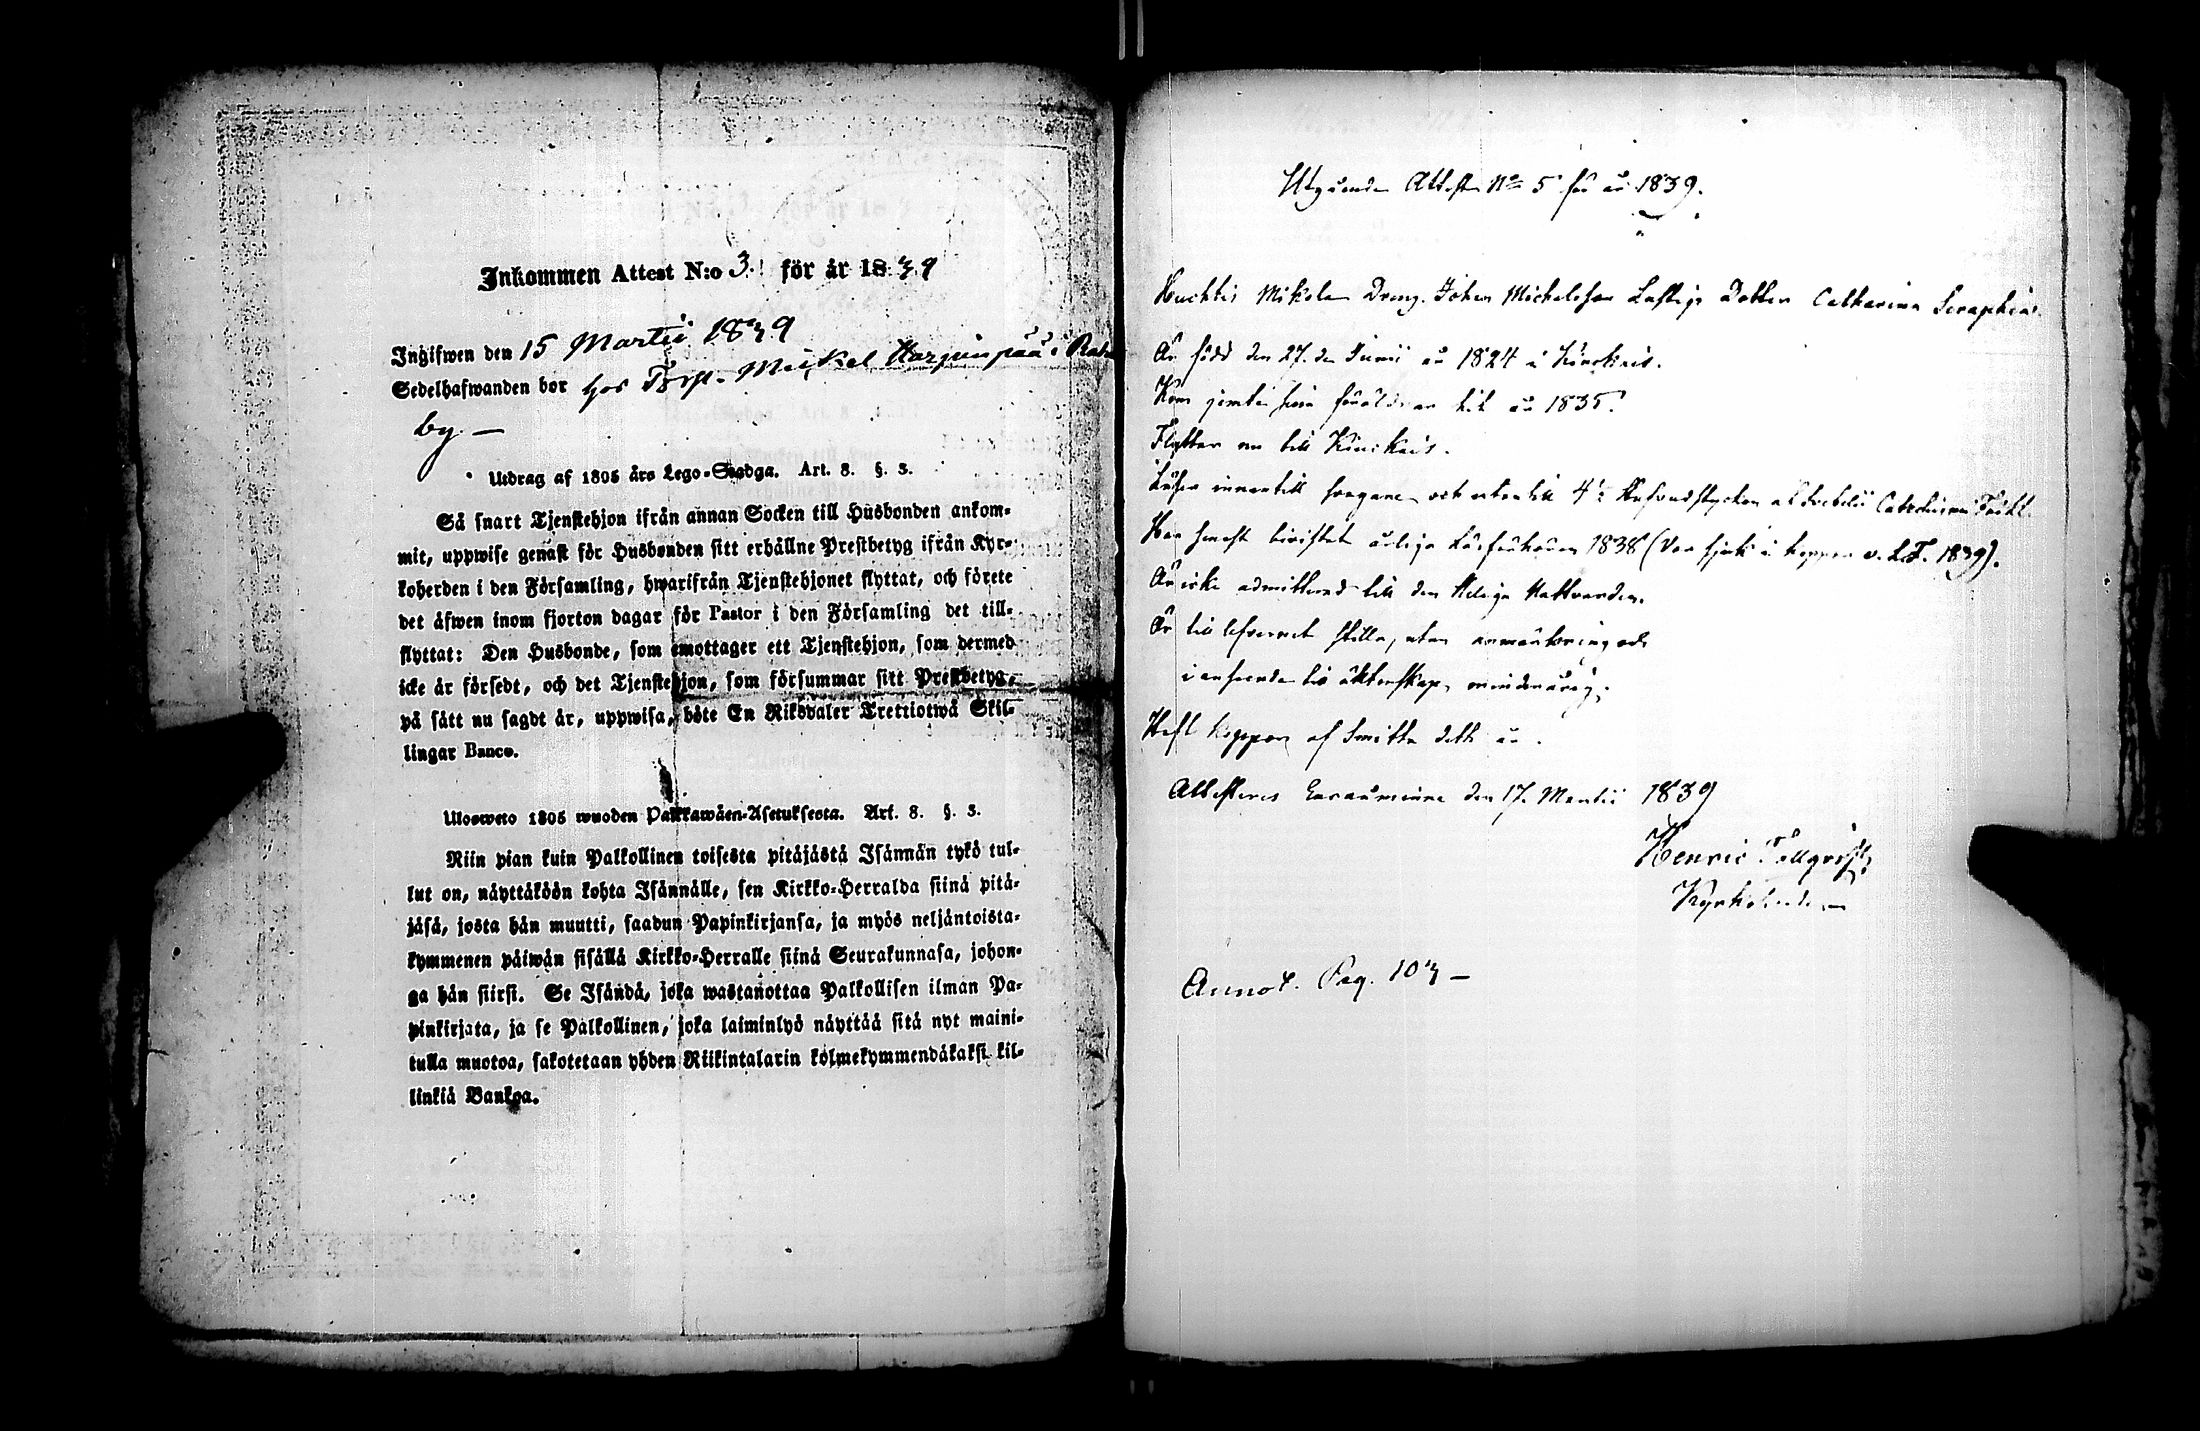 Inkommen Attest N:o 3. för år 1839
Ingifwen den 15 Martii 1839
Sedelhafwanden bor hos Torp. Mickel
by. —
Utdrag af 1805 års Lego-Stadga. Art. 8. §. 3.
Så snart Tjenstehjon ifrån annan Socken till Husbonden ankom-
mit, uppwise genast för Husbonden sitt erhållne Prestbetyg ifrån Kyr-
koherden i den Församling, hwarifrån Tjenstehjonet flyttat, och förete
det äfwen inom fjorton dagar för Pastor i den Församling det till-
flyttat: Den Husbonde, som emottager ett Tjenstehjon, som dermed
icke är försedt, och det Tjenstehjon, som försummar sitt Prestbetyg,
på sätt nu sagdt är, uppwisa, böte En Riksdaler Trettiotwå Skil-
lingar Banco.
Ulosweto 1805 wuoden Palkkawäen-Asetuksesta. Art. 8. §. 3.
Niin pian kuin Palkollinen toisesta pitäjästä Isännän tykö tul-
lut on, näyttäköön kohta Isännälle, sen Kirkko-Herralda siinä pitä-
jäsä, josta hän muutti, saadun Papinkirjansa, ja myös neljäntoista-
kymmenen päiwän sisällä Kirkko-Herralle siinä Seurakunnasa, johon-
ga hän siirsi. Se Isändä, joka wastanottaa Palkollisen ilman Pa-
pinkirjata, ja se Palkollinen, joka laiminlyö näyttää sitä nyt maini-
tulla muotoa, sakotetaan yhden Riikintalarin kolmekymmendäkaksi kil-
linkiä Bankoa.
Utgående Attest No 5 för år 1839.
Mikola Dreng. Johan Michelsson Dotter Catharina Seraphina
Är född den 27. de Junii år 1824 i
Kom jemte sina föräldrar hit år 1835.
Flyttar nu till
Läser innantill och utantill 4 Hufvudstycken
Har senast bivistat årliga Läseförhören 1838 (Var sjuk i koppor v. L.F. 1839).
Är icke admitterad till den Heliga Nattvarden.
Är till lefvernet stilla, utan anmärkning och
i anseende till äktenskap, minderårig.
Haft koppor af Smitta detta år.
Attesteras den 17. Martii 1839
Henric
Kyrkoherde
Annot. Pag. 103 —